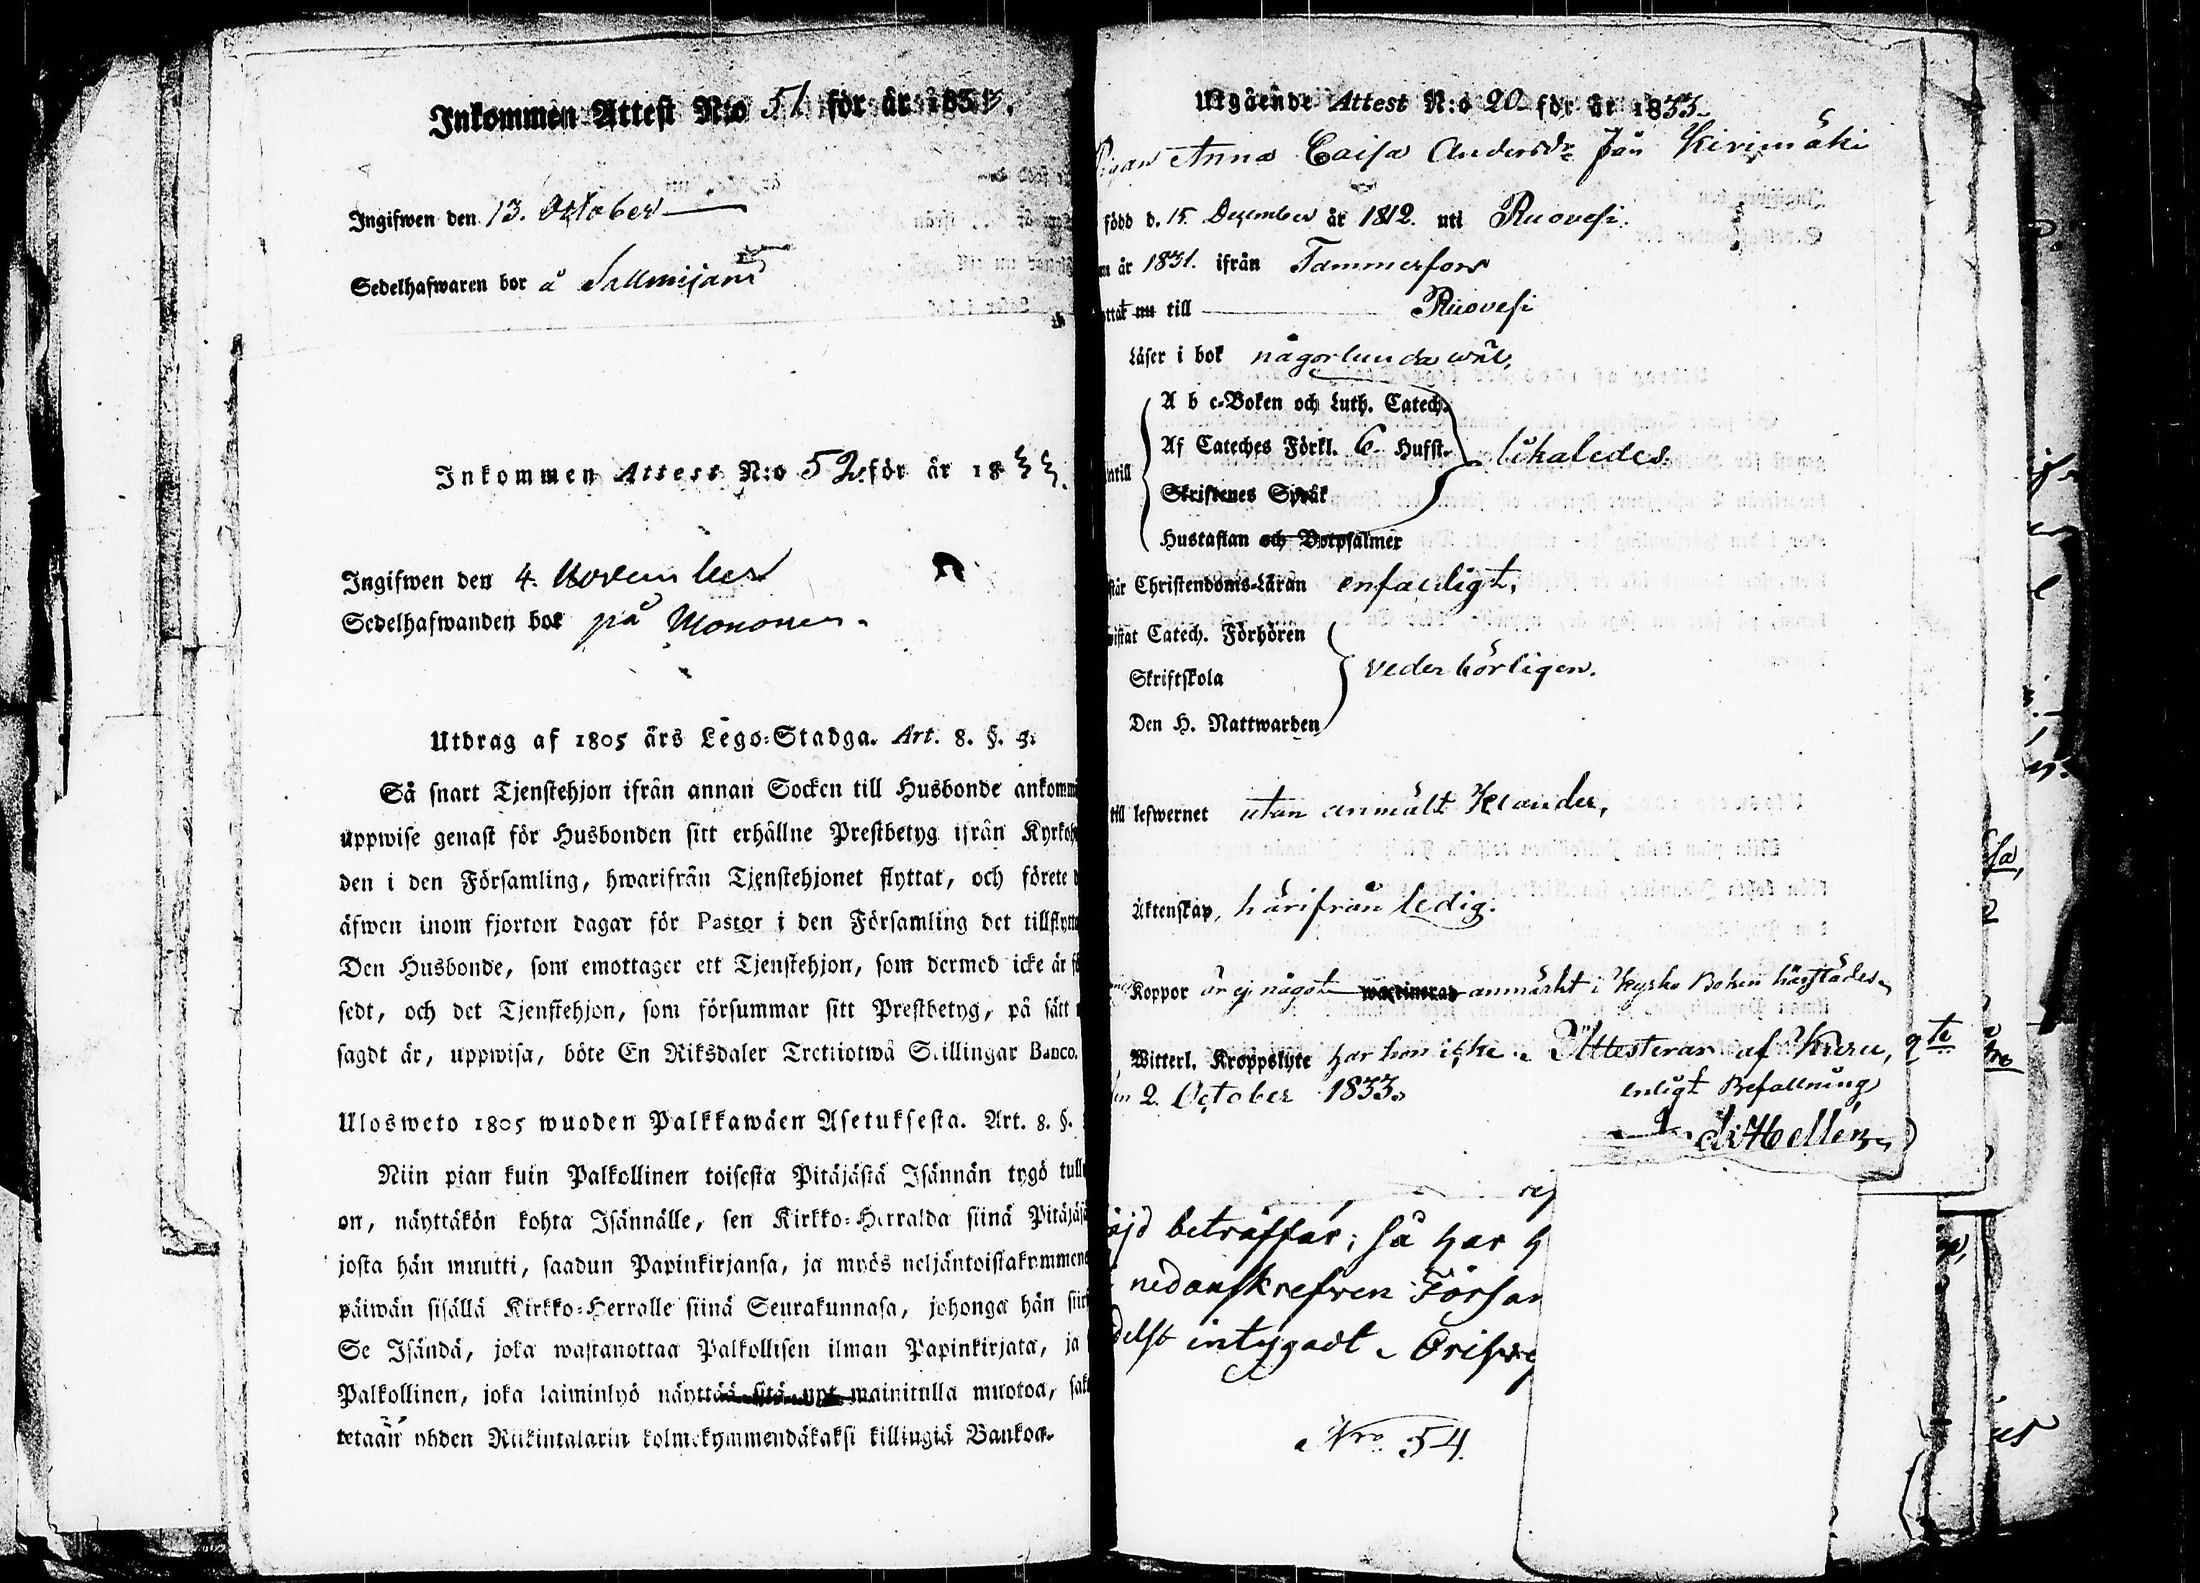 Inkommen Attest N:o 51 för år 1833.
Ingifwen den 13. October
Sedelhafwaren bor å
Inkommen Attest N:o 52 för år 1833.
Ingifwen den 4. November
Sedelhafwanden bor på Mononen.
Utdrag af 1805 års Lego-Stadga. Art. 8. §. 3.
Så snart Tjenstehjon ifrån annan Socken till Husbonde
uppwise genast för Husbonden sitt erhållne Prestbetyg ifrån
den i den Församling, hwarifrån Tjenstehjonet flyttat, och förete
äfwen inom fjorton dagar för Pastor i den Församling det
Den Husbonde, som emottager ett Tjenstehjon, som dermed icke är
sedt, och det Tjenstehjon, som försummar sitt Prestbetyg, på sätt
sagdt är, uppwisa, böte En Riksdaler Trettiotwå Skillingar Banco.
Ulosweto 1805 wuoden Palkkawäen Asetuksesta. Art. 8. §.
Niin pian kuin Palkollinen toisesta Pitäjästä Isännän tygö
on, näyttäkön kohta Isännälle, sen Kirkko-Herralda siinä
josta hän muutti, saadun Papinkirjansa, ja myös
päiwän sisällä Kirkko-Herralle siinä Seurakunnasa, johonga hän
Se Isändä, joka wastanottaa Palkollisen ilman Papinkirjata, ja
Palkollinen, joka laiminlyö näyttää sitä mainitulla muotoa,
tetaän yhden Riikintalarin kolmekymmendäkaksi killingiä Bankoa.
Utgående Attest N:o 20 för år 1833.
Pigan Anna Caisa Andersdr från Kirimäki
född d. 15 December år 1812. uti Ruovesi.
år 1831. ifrån Tammerfors
till Ruovesi
Läser i bok någorlunda wäl,
A b c-Boken och Luth. Catech.
Af Cateches Förkl. 6 Hufst. likaledes.
Skriftenes Språk
Hustaflan och Botpsalmer
Christendoms-Läran enfaldigt,
Catech. Förhören
Skriftskola vederbörligen.
Den H. Nattwarden
till lefwernet utan anmält klander,
Äktenskap, härifrån ledig.
Koppor är ej något anmärkt i Kyrko Boken härstädes,
Witterl. Kroppslyte har hon icke. Attesterar af Kuru,
2. October 1833.
enligt Befallning
beträffar; så har
nedanskrefven
intygadt.
Nro 54.